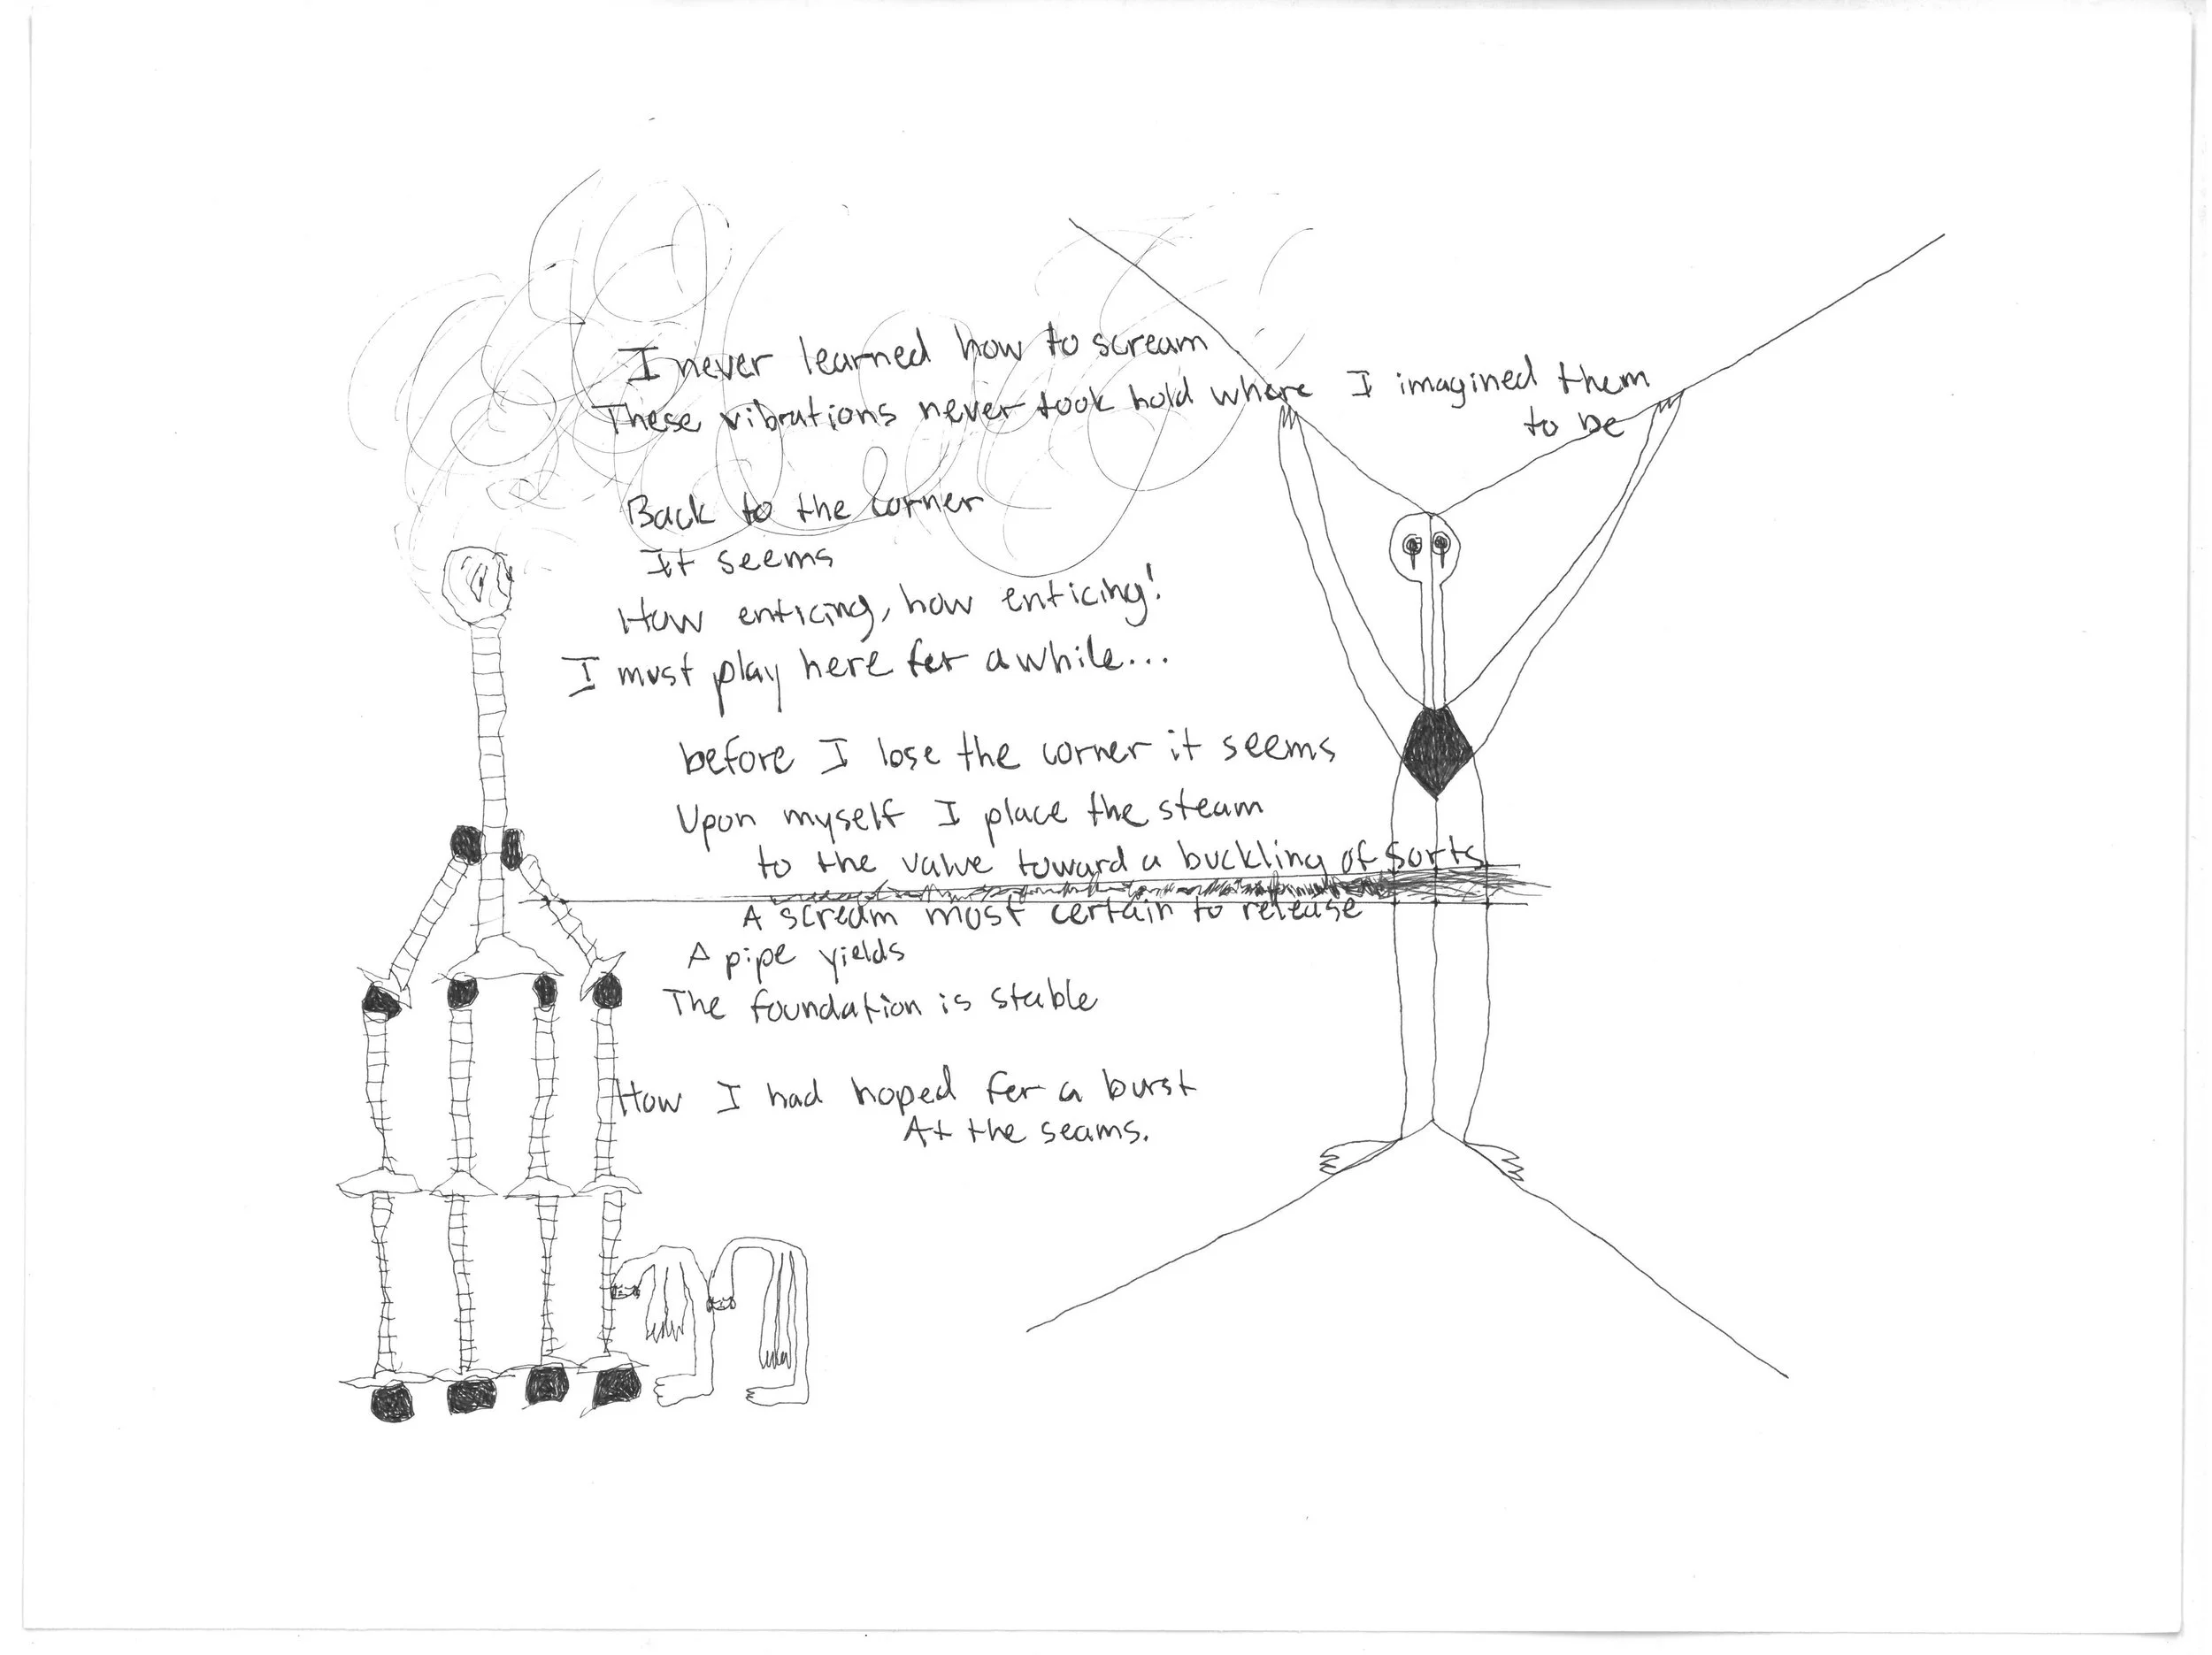 I never learned how to scream
These vibrations never took hold where I imagined them
to be
Back to the corner
It seems
How enticing, how enticing!
I must play here for awhile...
before I lose the corner it seems
Upon myself I place the steam
to the valve toward a buckling of sorts
A scream most certain to release
A pipe yields
The foundation is stable
How I had hoped for a burst
At the seams.